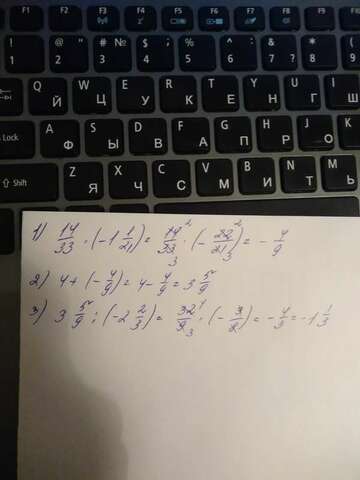 F1 F2 F3 F4 F5 F6 F7 F8 F9
! @ " # № $ ; % : ^ & ? * (
1 2 3 4 5 6 7 8 9
Q Й W Ц E У R К T Е Y Н U Г I Ш
Lock A Ф S Ы D В F А G П H Р J О K Л
Z Я X Ч C С V М B И N Т M Ь
1) 14/33 · (-1 1/21) = 14²/33₃ · (-22²/21₃) = -4/9
2) 4+(-4/9)=4-4/9=3 5/9
3) 3 5/9 : (-2 2/3) = 32/9₃ · (-3/8) = -4/3 = -1 1/3